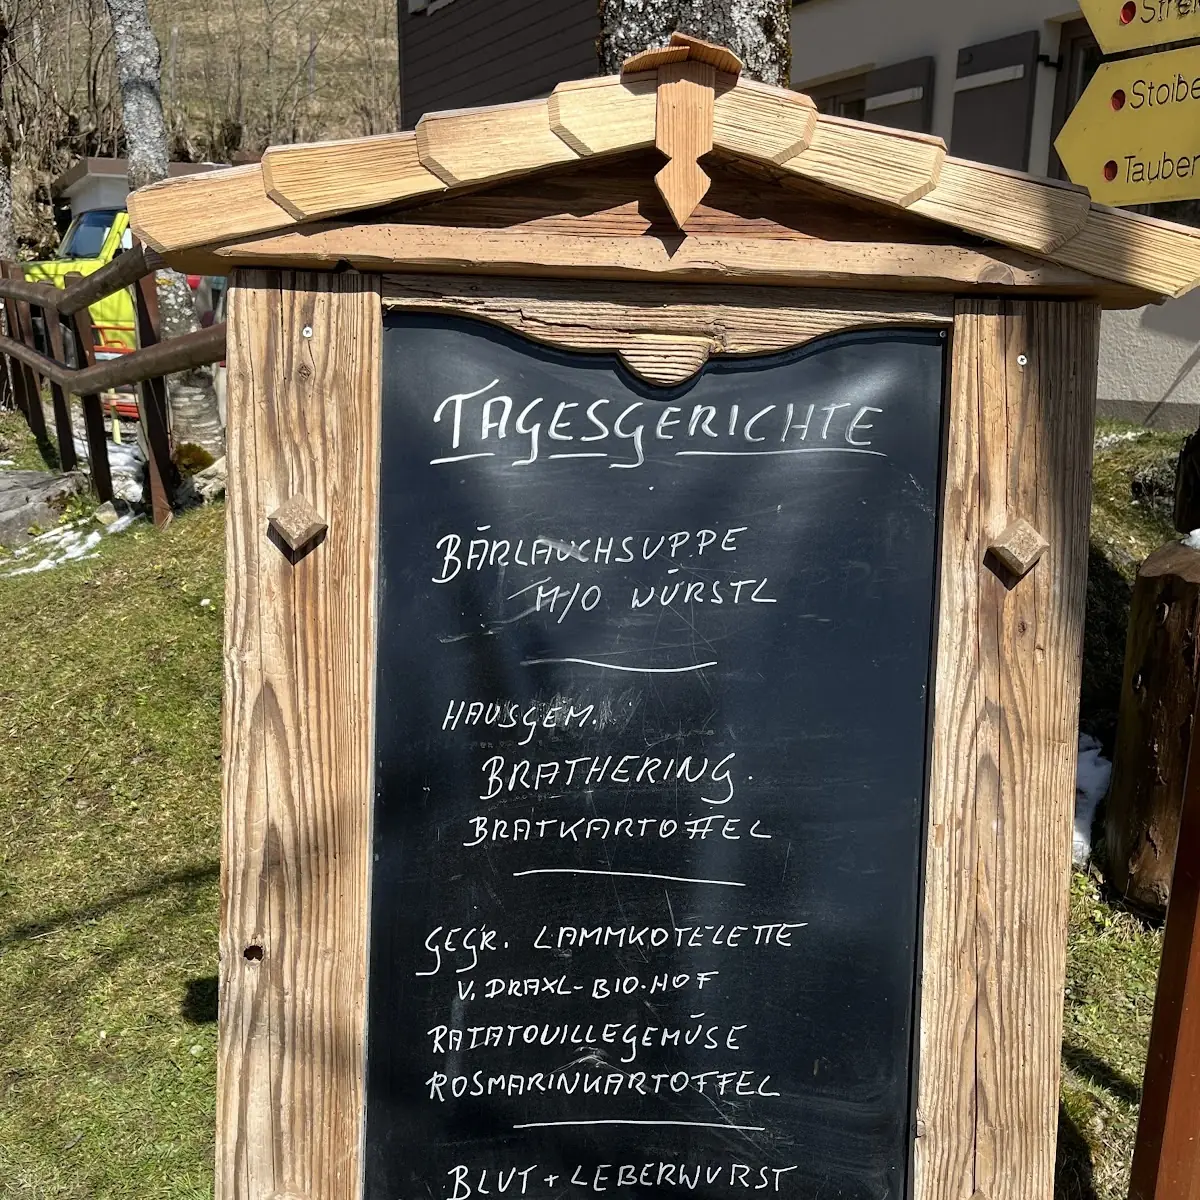 Stoibe
Tauber
TAGESGERICHTE
BÄRLAUCHSUPPE
M/O WÜRSTL
HAUSGEM.
BRATHERING.
BRATKARTOFFEL
GEGR. LAMMKOTELETTE
V. DRAXL-BIO-HOF
RATATOUILLEGEMÜSE
ROSMARINKARTOFFEL
BLUT + LEBERWURST